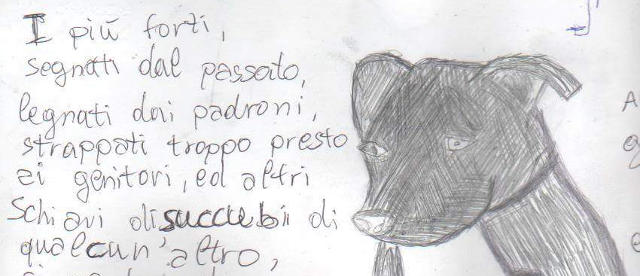 I più forti,
segnati dal passato,
legnati dai padroni,
strappati troppo presto
ai genitori, ed altri
Schiavi disuccubi di
qualcun'altro,